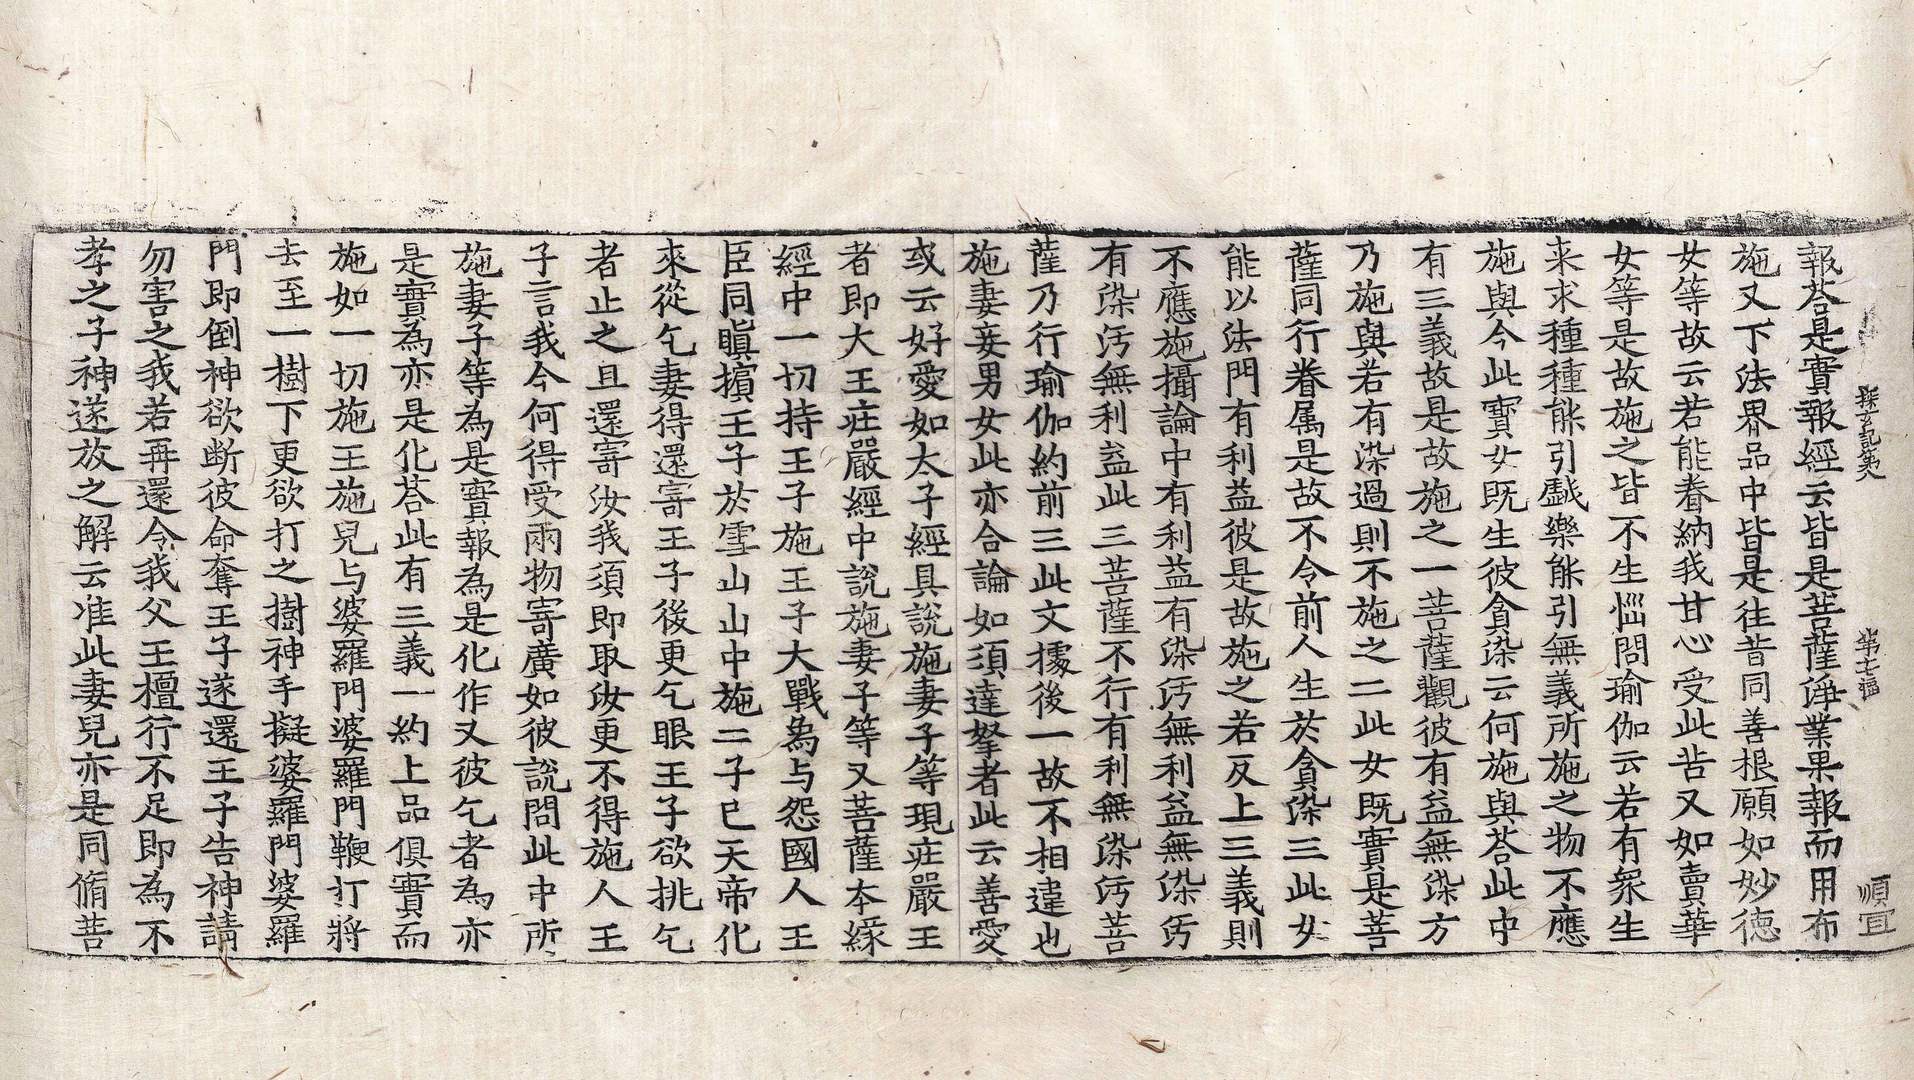 探玄記第八 第七福 順宜
報荅是實報經云皆是菩薩淨業果報而用布
施又下法界品中皆是往昔同善根願如妙德
女等故云若能眷納我甘心受此苦又如賣華
女等是故施之皆不生惱問瑜伽云若有衆生
来求種種能引戯樂能引無義所施之物不應
施與今此寶女既生彼貪染云何施與荅此中
有三義故是故施之一菩薩觀彼有益無染方
乃施與若有染過則不施之二此女既實是菩
薩同行眷属是故不令前人生於貪染三此女
能以法門有利益彼是故施之若反上三義則
不應施攝論中有利益有染汚無利益無染汚
有染汚無利益此三菩薩不行有利無染汚菩
薩乃行瑜伽約前三此文據後一故不相違也
施妻妾男女此亦合論如須達拏者此云善愛
或云好愛如太子經具說施妻子等現莊嚴王
者即大王莊嚴經中說施妻子等又菩薩本緣
經中一切持王子施王子大戰爲与怨國人王
臣同瞋擯王子於雪山山中施二子已天帝化
來從乞妻得還寄王子後更乞眼王子欲挑乞
者止之且還寄汝我須即取汝更不得施人王
子言我今何得受兩物寄廣如彼說問此中所
施妻子等為是實報為是化作又彼乞者為亦
是實為亦是化荅此有三義一約上品俱實而
施如一切施王施兒与婆羅門婆羅門鞭打將
去至一樹下更欲打之樹神手擬婆羅門婆羅
門即倒神欲断彼命奪王子遂還王子告神請
勿害之我若再還令我父王檀行不足即為不
孝之子神遂放之解云准此妻兒亦是同脩菩